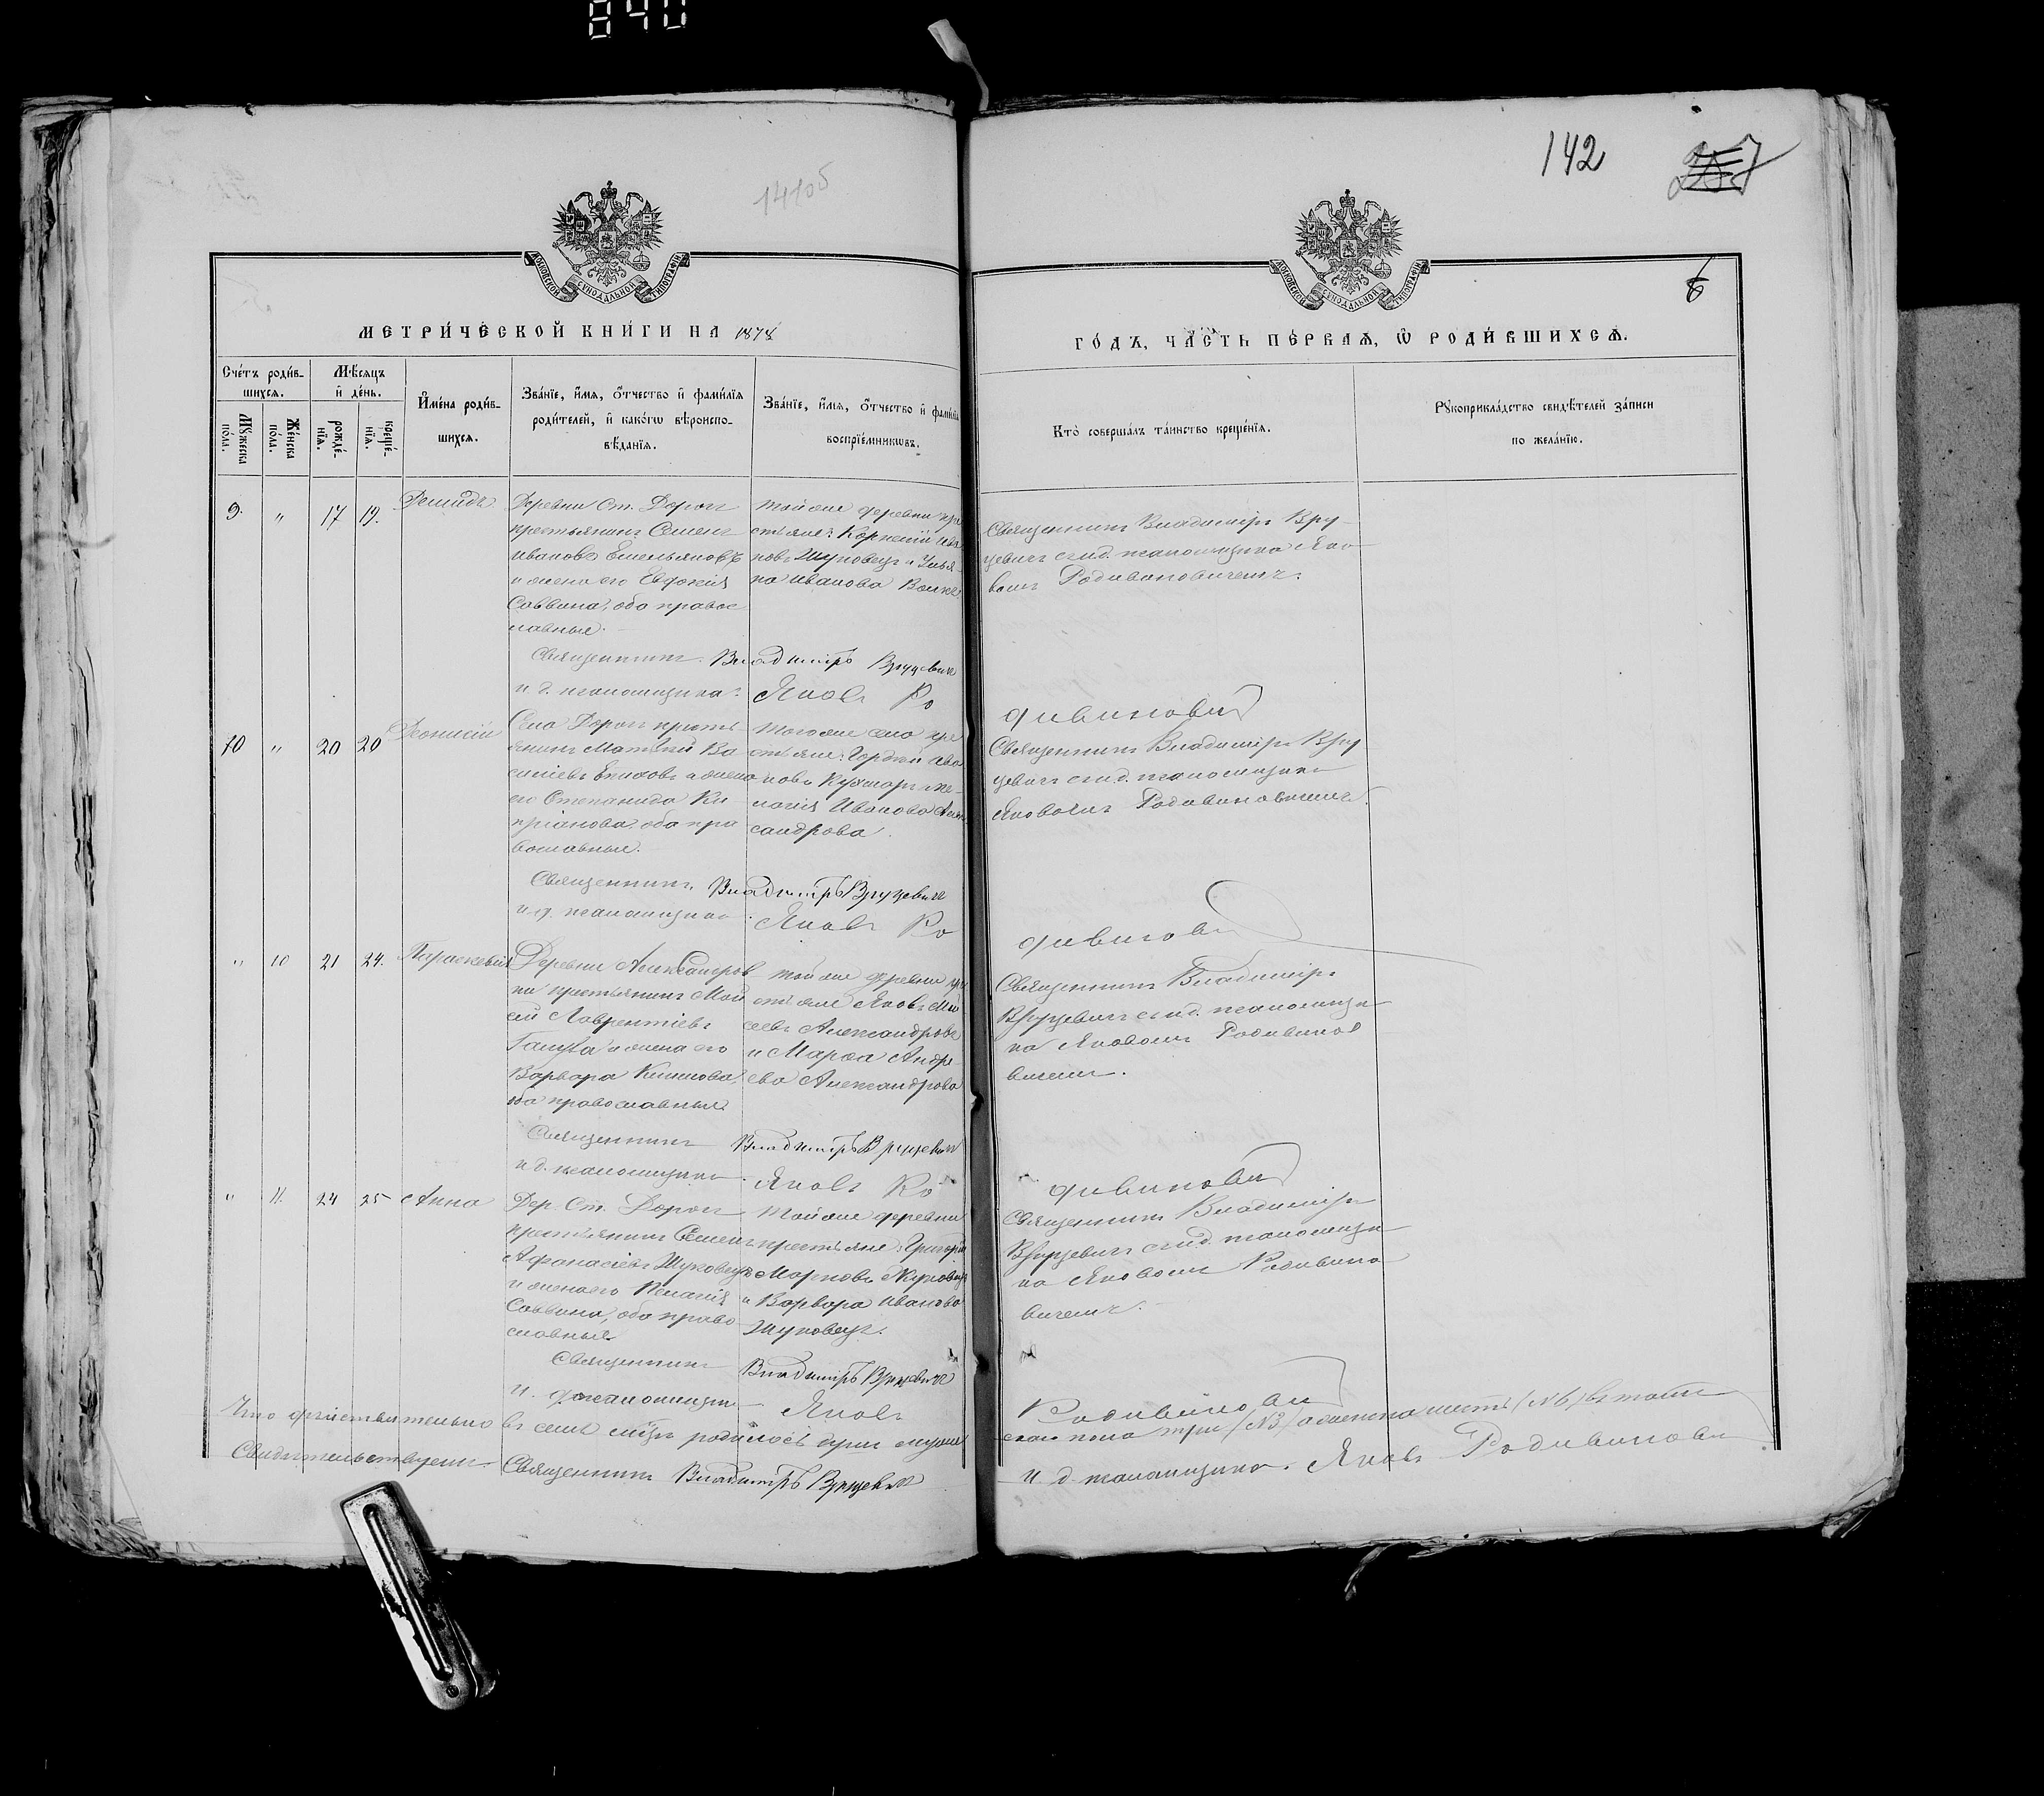 840
14105
142
6
МОСКОВСКОЙ СѴНОДАЛЬНОЙ ТИПОГРАФІИ
МОСКОВСКОЙ СѴНОДАЛЬНОЙ ТИПОГРАФІИ
МЕТРИ́ЧЕСКОЙ КНИ́ГИ НА 1878
ГО́ДЪ, ЧА́СТЬ ПЕ́РВАѦ, Ѽ РОДИ́ВШИХСѦ.
Сче́тъ роди́в-
шихсѧ.
Мѣ́сѧцъ
и҆ де́нь.
Мꙋ́жеска
по́ла.
Же́нска
по́ла.
рожде́-
нїѧ.
креще́-
нїѧ.
И҆мена̀ роди́в-
шихсѧ.
Зва́нїе, и҆́мѧ, ѻ҆́тчество и҆ фами́лїѧ
роди́телей, и҆ како́гѡ вѣроиспо-
вѣ́данїѧ.
Зва́нїе, и҆́мѧ, ѻ҆́тчество и҆ фами́лїѧ
воспрїе́мникѡвъ.
Кто̀ соверша́лъ та́инство креще́нїѧ.
Рꙋкоприкла́дство свидѣ́телей за́писи
по жела́нїю.
9. " 17 19. Демидъ
Деревни Ст. Дорог
крестьянинъ Семенъ
Ивановъ Емельяновъ
и жена его Евдокія
Саввина, оба право
славные.
Той же деревни кре
стьяне: Корнелій Ива
новъ Шуновецъ и Улья
на Иванова
Священникъ Владиміръ Вру
цевичъ с и.д. псаломщика Яко
вомъ Родивиновичемъ.
Священникъ Владиміръ Вруцевич
и д. псаломщика Яковъ Родивинович
10 " 20 20 Діонисій
Села Дорог крестъ
янинъ Матѳей Ва
силіевъ и жена
его Степанида Ки
пріанова, оба пра
вославные.
Того же села кре
стьяне: Гордѣй Ива
новъ и Пе
лагія Иванова Алек
сандрова.
Священникъ Владиміръ Вру
цевичъ с и.д. псаломщика
Яковомъ Родивиновичемъ.
Священникъ Владиміръ Вруцевичъ
и д. псаломщика Яковъ Родивинович
" 10 21 24. Параскевія
Деревни Александров
ки крестьянинъ Мои
сей Лаврентіевъ
и жена его
Варвара Климова,
оба православные.
Той же деревни кре
стьяне Яковъ Мои
сеевъ Александровъ
и Марѳа Андре
ева Александрова
Священникъ Владиміръ
Вруцевичъ с и.д. псаломщи
ка Яковомъ Родивинов
ичемъ.
Священникъ Владиміръ Вруцевич
и д. псаломщика Яковъ Родивинович
" 11. 24 25 Анна
Дер. Ст. Дорог
крестьянинъ Семенъ
Афанасіевъ Шуновецъ
и жена его Пелагія
Саввина, оба право
славные
Той же деревни
крестьяне: Григорій
Марковъ
и Варвара Иванова
Шуновецъ.
Священникъ Владиміръ
Вруцевичъ с и.д. псаломщи
ка Яковомъ Родивино
вичемъ.
Священникъ Владиміръ Вруцевичъ
и. д псаломщика Яковъ Родивинович
Что дѣйствительно въ семъ мѣсяцѣ родилось душъ муже
скаго пола три (№3) а женска шесть (№6) въ томъ
Свидѣтельствуемъ Священникъ Владиміръ Вруцевич
и. д псаломщика Яковъ Родивинович